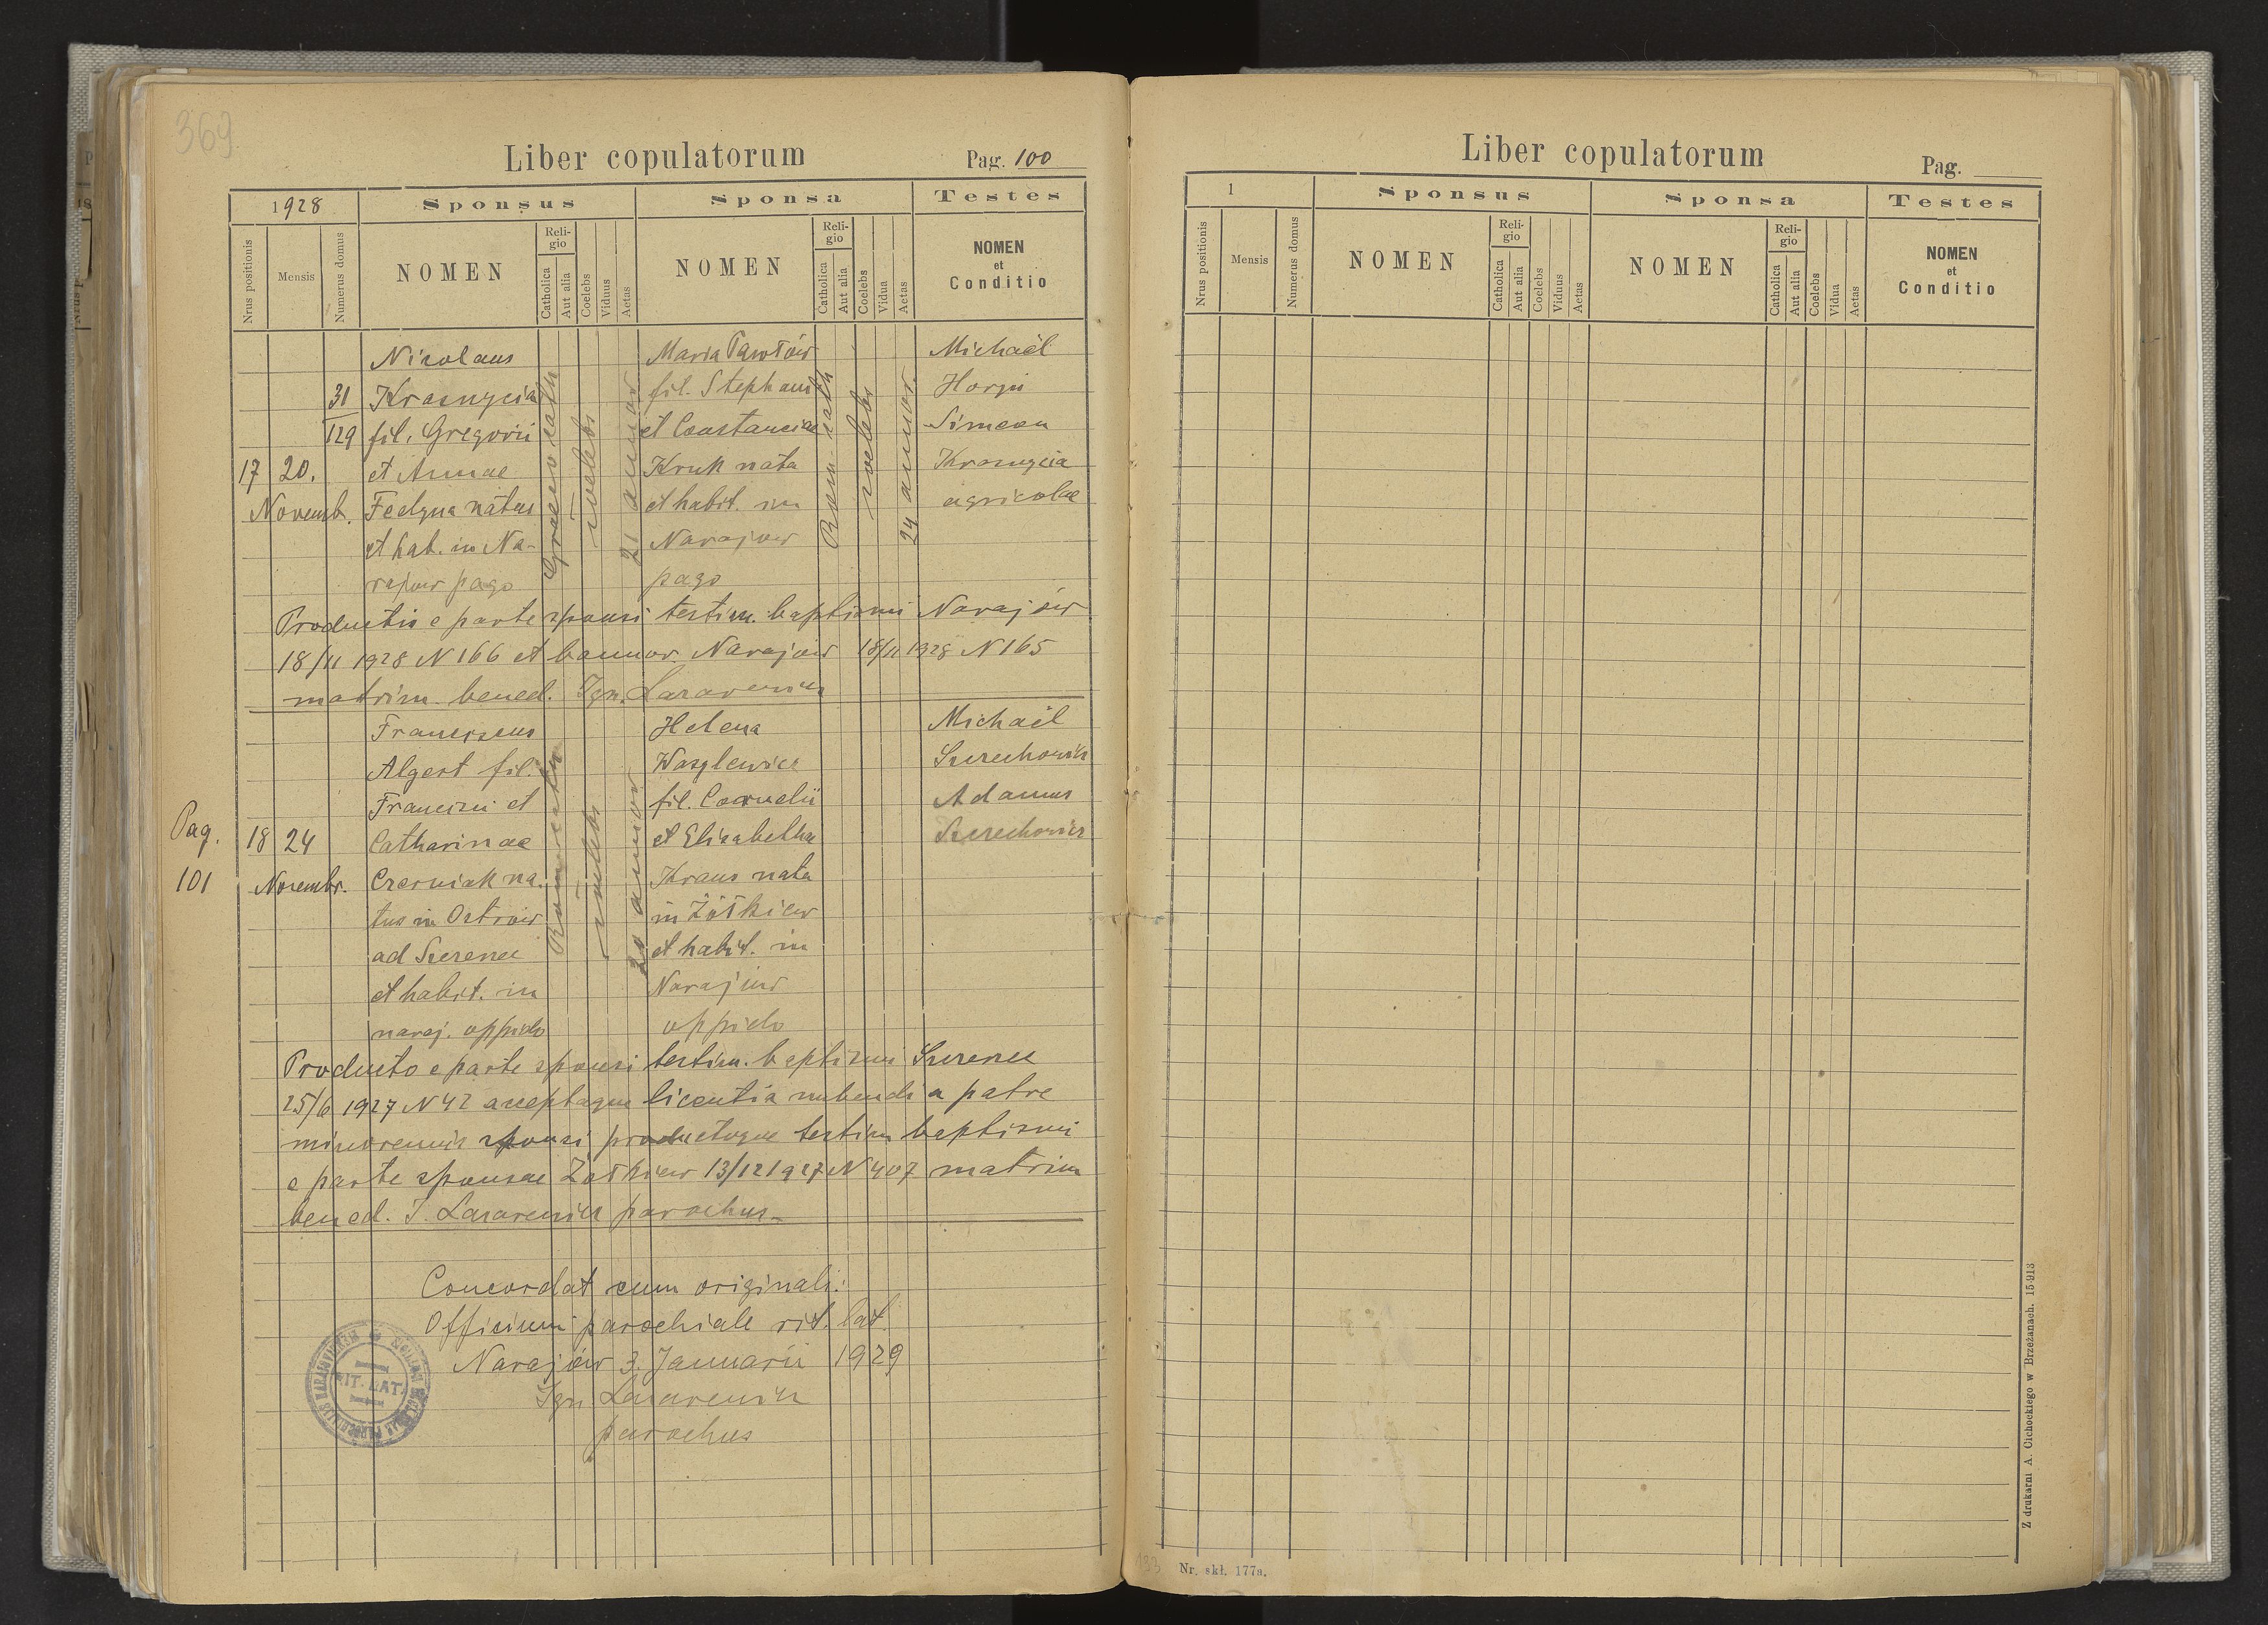 369
Liber copulatorum
Pag. 100
1928
Sponsus
Sponsa
Testes
Nrus positionis
Mensis
Numerus domus
NOMEN
Religio
Catholica
Aut alia
Coelebs
Viduus
Aetas
NOMEN
Religio
Catholica
Aut alia
Coelebs
Vidua
Aetas
NOMEN
et
Conditio
17
20.
Novemb.
31
129
Nicolaus
fil. Gregorii
et Annae
Fedyna natus
et hab. in Na-
rajow pago
Graeco cath
coelebs
21 annor
Maria Pawłów
fil. Stephani
et Constanciae
Kruk nata
et habit. in
Narajow
pago
Rom. cath
coelebs
24 annor.
Michaël
Simeon
agricolae
Productis e parte sponsi testim. baptismi Narajów
18/11 1928 N 166 et bannor. Narajów 18/11 1928 N 165
matrim. bened. Ign. Lazarewicz
Pag.
101
18
24
Novembr.
Franciscus
Algert fil.
Francisci et
Catharinae
Czerniak na-
tus in Ostrów
ad Szczerzec
et habit. in
naraj. oppido
coelebs
annor
Helena
Wasylewicz
fil. Cornelii
et Elisabetha
Kraus nata
in Żółkiew
et habit. in
Narajów
oppido
Michaël
Adamus
Producto e parte sponsi testim. baptismi
25/6 1927 N 42 acceptaque licentia nubendi a patre
minorennis sponsi productoque testim baptismi
e parte sponsae Żółkiew 13/12 1927 N 407 matrim
bened. I. Lazarewicz parochus
Concordat cum originali:
Officium parochiale rit. lat.
Narajów 3. Januarii 1929
Ign Lazarewicz
parochus
RIT. LAT.
Liber copulatorum
Pag.
1
Sponsus
Sponsa
Testes
Nrus positionis
Mensis
Numerus domus
NOMEN
Religio
Catholica
Aut alia
Coelebs
Viduus
Aetas
NOMEN
Religio
Catholica
Aut alia
Coelebs
Vidua
Aetas
NOMEN
et
Conditio
Z drukarni A. Cichockiego w Brzeżanach. 15·913
Nr. skł. 177a.